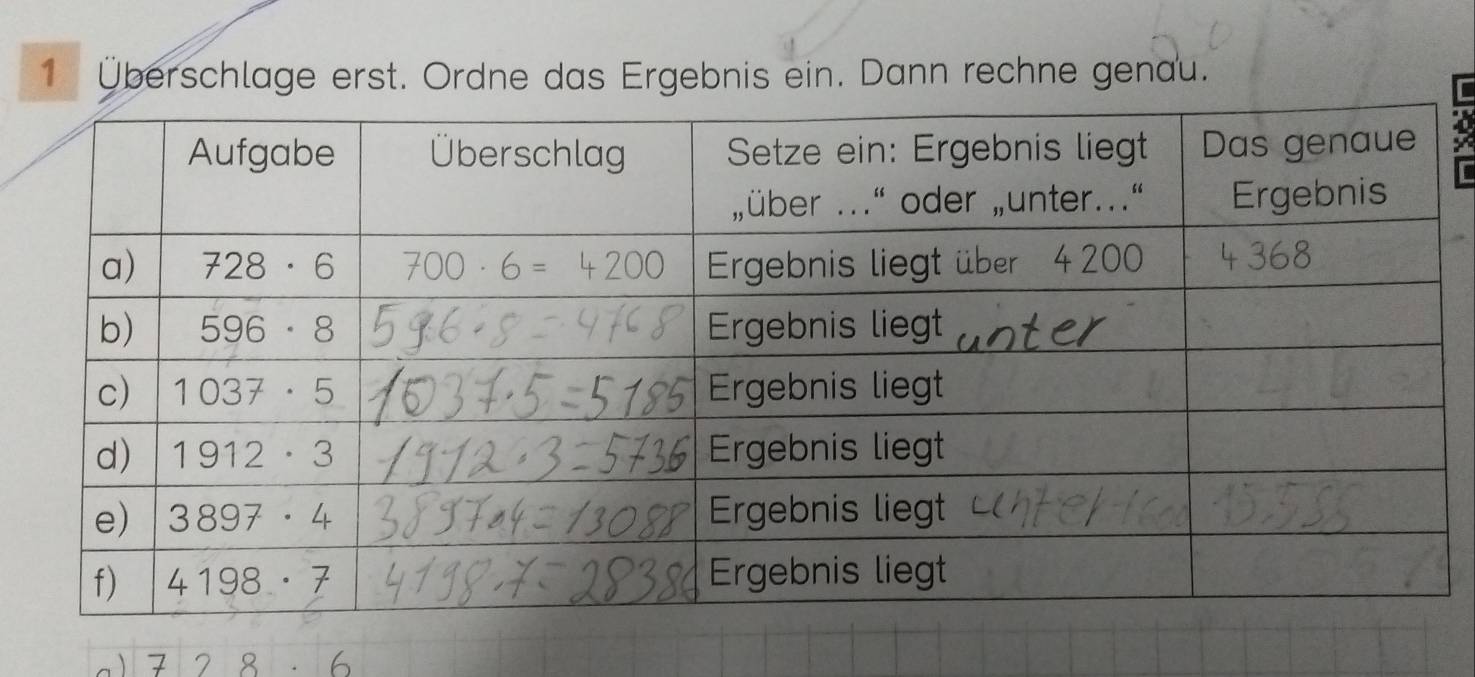 1 Überschlage erst. Ordne das Ergebnis ein. Dann rechne genau.
Aufgabe Überschlag Setze ein: Ergebnis liegt „über ...“ oder „unter...“ Das genaue Ergebnis
a) 728 · 6 700 · 6 = 4200 Ergebnis liegt über 4200 4368
b) 596 · 8 596 · 8 = 4768 Ergebnis liegt unter
c) 1037 · 5 1037 · 5 = 5185 Ergebnis liegt
d) 1912 · 3 1912 · 3 = 5736 Ergebnis liegt
e) 3897 · 4 3897 · 4 = 13088 Ergebnis liegt unter
f) 4198 · 7 4198 · 7 = 28386 Ergebnis liegt
a) 728 · 6